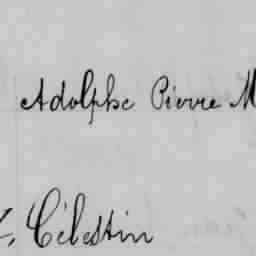 Adolphe Pierre M
, Célestin